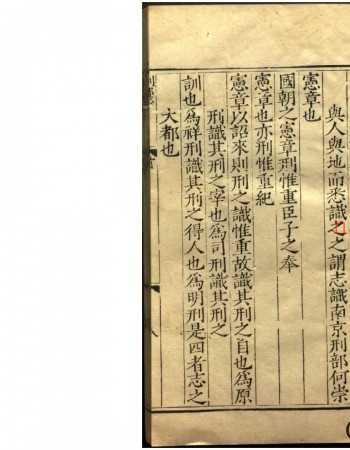 與人與地而悉識之之謂志識南京刑部何崇
憲章也
國朝之憲章刑惟重臣子之奉
憲章也亦刑惟重紀
憲章以詔來則刑之識惟重故識其刑之自也為原
刑識其刑之宰也為司刑識其刑之
訓也為祥刑識其刑之得人也為明刑是四者志之
大都也